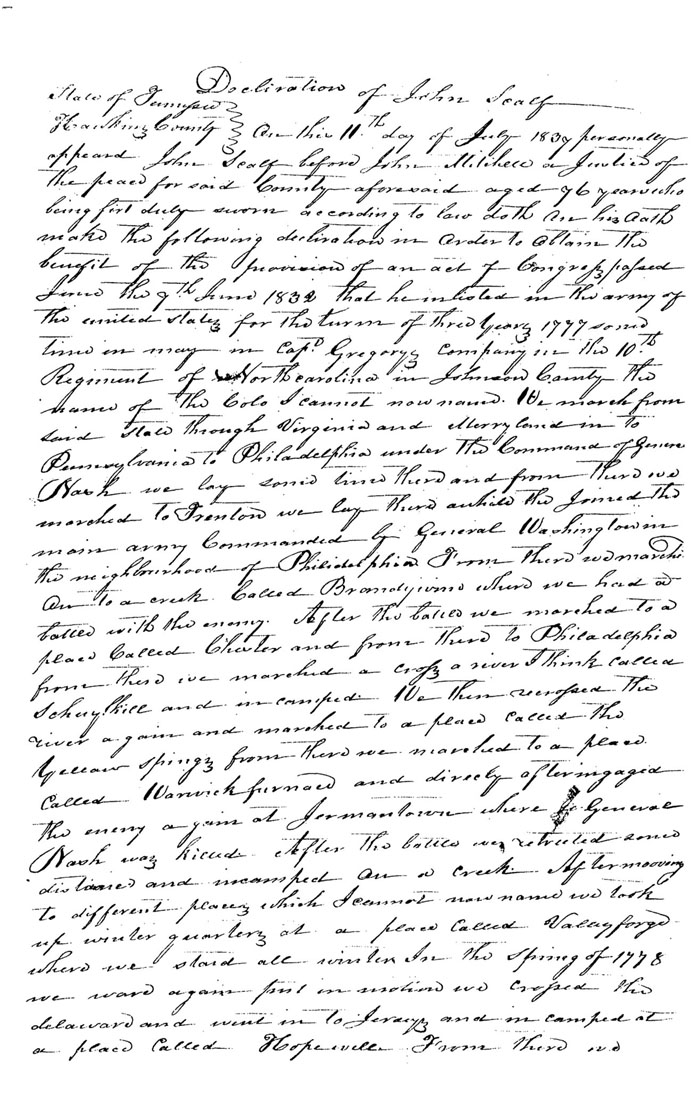 Decliration of John Scalf
State of Tennessee
Hawkins County } On this 11th day of July 1837 personally
appeard John Scalf before John Mitchell a Justice of
the peace for said County aforesaid aged 76 years who
being first duly sworn according to law doth on his oath
make the following decliration in order to obtain the
benefit of the provision of an act of Congress passed
June the 7th June 1832 that he inlisted in the army of
the united states for the turm of three years 1777 some
time in may in Capt Gregorys company in the 10th
Regiment of North carolina in Johnson County the
name of the Colo I cannot now name. We march from
said State through Virginia and Merryland in to
Pennsylvania to Philadelphia under the Command of General
Nash we lay some time there and from there we
marched to Trenton we lay there awhile the Joined the
main army Commanded by General Washington in
the neighbourhood of Philidelphia From there we marchd
on to a creek Called Brandywine where we had a
battle with the enemy. After the battle we marched to a
place Called Chester and from there to Philadelphia
from there we marched a cross a river I think called
Schuylkill and in camped We then recrossed the
river a gain and marched to a place called the
Yellow springs from there we marched to a place
called Warwick furnace and directly after ingaged
the enemy a gain at Jermantown where General
Nash was killed After the battle we retreted some
distance and incamped on a creek After mooving
to different places which I cannot now name we took
up winter quarters at a place called Valleyforge
where we staid all winter In the Spring of 1778
we ward again put in motion we crossed the
delaware and went in to Jerseys and in camped at
a place Called Hopewille From there we